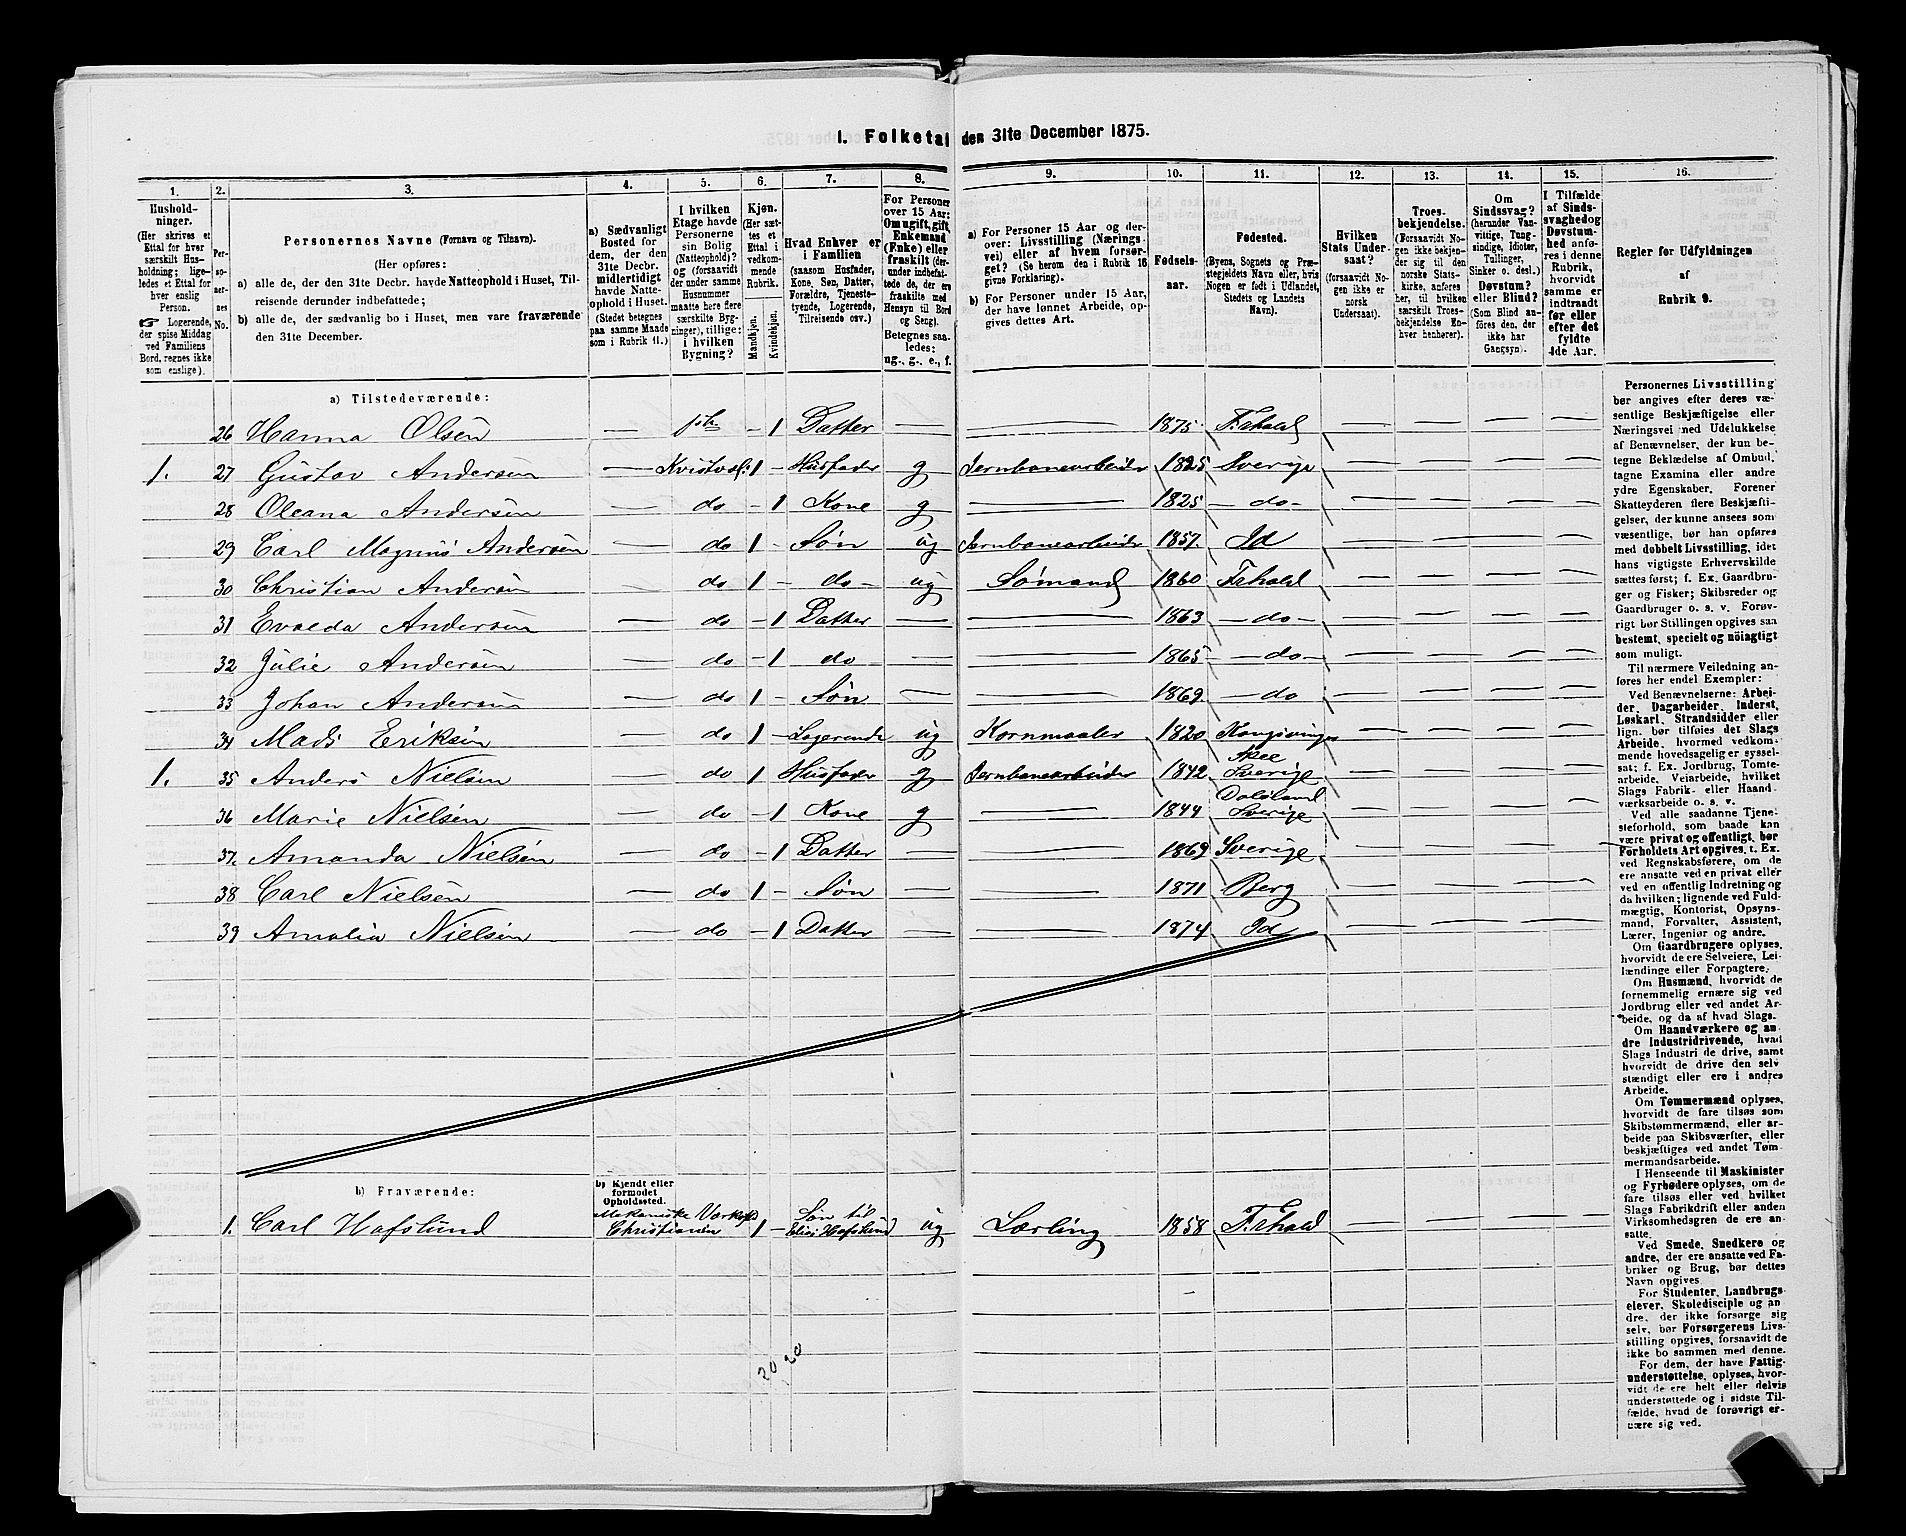 1. Folketal den 31te December 1875.
1. 2. 3. 4. 5. 6. 7. 8. 9. 10. 11. 12. 13. 14. 15. 16.
Hushold-
ninger.
(Her skrives et
Ettal for hver
særskilt Hus-
holdning; lige-
ledes et Ettal for
hver enslig
Person.
☞ Logerende,
der spise Middag
ved Familiens
Bord, regnes ikke
som enslige).
Per-
so-
ner-
nes
No.
Personernes Navne (Fornavn og Tilnavn).
(Her opføres:
a) alle de, der den 31te Decbr. havde Natteophold i Huset, Til-
reisende derunder indbefattede;
b) alle de, der sædvanlig bo i Huset, men vare fraværende
den 31te December.
a) Sædvanligt
Bosted for
dem, der den
31te Decbr.
midlertidigt
havde Natte-
ophold i Huset.
(Stedet betegnes
paa samme Maade
som i Rubrik 11.)
I hvilken
Etage havde
Personerne
sin Bolig
(Natteophold)?
og (forsaavidt
der under samme
Husnummer
maatte høre flere
særskilte Byg-
ninger), tillige:
i hvilken
Bygning?
Kjøn.
(Her sæt-
tes et
Ettal i
vedkom-
mende
Rubrik.
Mandkjøn.
Kvindekjøn.
Hvad Enhver er
i Familien
(saasom Husfader,
Kone, Søn, Datter,
Forældre, Tjeneste-
tyende, Logerende,
Tilreisende osv.)
For Personer
over 15 Aar:
Om ugift, gift,
Enkemand
(Enke) eller
fraskilt (der-
under indbefat-
tede de, der ere
fraskilte med
Hensyn til Bord
og Seng).
Betegnes saa-
ledes:
ug., g., e., f.
a) For Personer 15 Aar og der-
over: Livsstilling (Nærings-
vei) eller af hvem forsør-
get? (Se herom den i Rubrik 16
givne Forklaring).
b) For Personer under 15 Aar,
der have lønnet Arbeide, op-
gives dettes Art.
Fødsels-
aar.
Fødested.
(Byens, Sognets og Præ-
stegjeldets Navn eller, hvis
Nogen er født i Udlandet,
Stedets og Landets
Navn).
Hvilken
Stats Under-
saat?
(forsaavidt No-
gen ikke er
norsk
Undersaat).
Troes-
bekjendelse.
(Forsaavidt No-
gen ikke bekjen-
der sig til den
norske Stats-
kirke, anføres
her, til hvilken
særskilt Troes-
bekjendelse En-
hver henhører).
Om
Sindssvag?
(herunder Van-
vittige, Tung-
sindige, Idioter,
Tullinger,
Sinker o. desl.)
Døvstum?
eller Blind?
(Som Blind an-
føres den, der
ikke har
Gangsyn).
I Tilfælde
af Sinds-
svaghed og
Døvstum-
hed anfø-
res i denne
Rubrik,
hvorvidt
samme er
indtraadt
før eller
efter det
fyldte
4de Aar.
Regler for Udfyldningen
af
Rubrik 9.
a) Tilstedeværende:
26 Hanna Olsen — — 1 Datter — — 1875 Frhald — — —
1. 27 Gustav Andersen — 1 — Husfader g Jernbanearbeider 1825 Sverige — — — —
28 Oleana Andersen — do — 1 Kone g — 1825 — do — — — — —
29 Carl Magnus Andersen — do 1 — Søn ug Jernbanearbeider 1857 Id — — — —
30 Christian Andersen — do 1 — do — ug Sømand 1860 Frhald — — — —
31 Evalda Andersen — do — 1 Datter — — 1863 — do — — — — —
32 Julie Andersen — do — 1 do — — 1865 — do — — — — —
33 Johan Andersen — do 1 — Søn — — 1869 — do — — — —
34 Mads Eriksen — do 1 — Logerende ug Kornmaaler 1820 Kongsvinger — — — —
1. 35 Anders Nielsen — do 1 Husfader g Jernbanearbeider 1842 Sverige — — — —
36 Marie Nielsen — do — 1 Kone g — 1844 Dalsland Sverige — — — —
37. Amanda Nielsen — do — 1 Datter — — 1869 Sverige — — — —
38 Carl Nielsen — do 1 — Søn — — 1871 Berg — — — —
39 Amalia Nielsen — do — 1 Datter — — 1874 Id — — — —
b) Fraværende:
b) Kjendt eller
formodet
Opholdssted.
1. Carl Hafslund Mekaniske Christiania 1 — Søn til Elise Hafslund ug Lærling 1858 Frhald — — — —
20 20
Personernes Livsstilling
bør angives efter deres væ-
sentlige Beskjæftigelse eller
Næringsvei med Udelukkelse
af Benævnelser, der kun be-
tegne Beklædelse af Ombud,
tagne Examina eller andre
ydre Egenskaber. Forener
Skatteyderen flere Beskjæfti-
gelser, der kunne ansees som
væsentlige, bør han opføres
med dobbelt Livsstilling, idet
hans vigtigste Erhvervskilde
sættes først; f. Ex. Gaardbru-
ger og Fisker; Skibsreder og
Gaardbruger o. s. v. Forøv-
rigt bør Stillingen opgives saa
bestemt, specielt og nöiagtigt
som muligt.
Til nærmere Veiledning an-
føres her endel Exempler:
Ved Benævnelserne: Arbei-
der, Dagarbeider, Inderst,
Løskarl, Strandsidder eller
lign. bør tilføies det Slags
Arbeide, hvormed vedkom-
mende hovedsagelig er syssel-
sat; f. Ex. Jordbrug, Tomte-
arbeide, Veiarbeide, hvilket
Slags Fabrik- eller Haand-
værksarbeide o. s. v.
Ved alle saadanne Tjene-
steforhold, som baade kan
være privat og offentligt, bør
Forholdets Art opgives, t. Ex.
ved Regnskabsførere, om de
ere ansatte ved en privat eller
ved en offentlig Indretning og
da hvilken; lignende ved Fuld-
mægtig, Kontorist, Opsyns-
mand, Forvalter, Assistent,
Lærer, Ingeniør og andre.
Om Gaardbrugere oplyses,
hvorvidt de ere Selveiere, Lei-
lændinge eller Forpagtere.
Om Husmænd, hvorvidt de
fornemmelig ernære sig ved
Jordbrug eller ved andet Ar-
beide, og da af hvad Slags.
Om Haandværkere og an-
dre Industridrivende, hvad
Slags Industri de drive, samt
hvorvidt de drive den selv-
stændigt eller ere i andres
Arbeide.
Om Tømmermænd oplyses,
hvorvidt de fare tilsøs som
Skibstømmermænd, eller ar-
beide paa Skibsværfter, eller
beskjæftiges ved andet Tøm-
mermandsarbeide.
I Henseende til Maskinister
og Fyrbødere oplyses, om de
fare tilsøs eller ved hvilket
Slags Fabrikdrift eller anden
Virksomhedsgren de ere an-
satte.
Ved Smede, Snedkere og
andre, der ere ansatte ved Fa-
briker og Brug, bør dettes
Navn opgives
For Studenter, Landbrugs-
elever, Skoledisciple og an-
dre, der ikke forsørge sig
selv, bør Forsørgerens Livs-
stilling opgives, forsaavidt de
ikke bo sammen med denne.
For dem, der have Fattig-
understøttelse, oplyses, hvor-
vidt de ere helt eller delvis
understøttede og i sidste Til-
fælde, hvad de forøvrigt er-
nære sig ved.